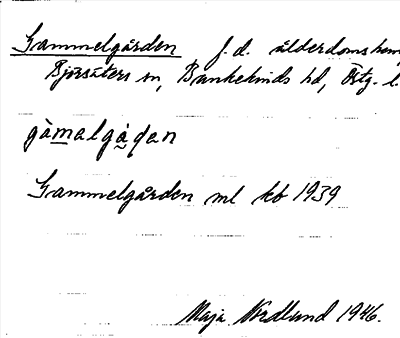 Gammelgården f.d. ålderdomshem,
Björsäters sn, Bankekinds hd, Östg. l.
gàmalgạ̊ḍan
Gammelgården ml kb 1939
Maja Nordlund 1946.